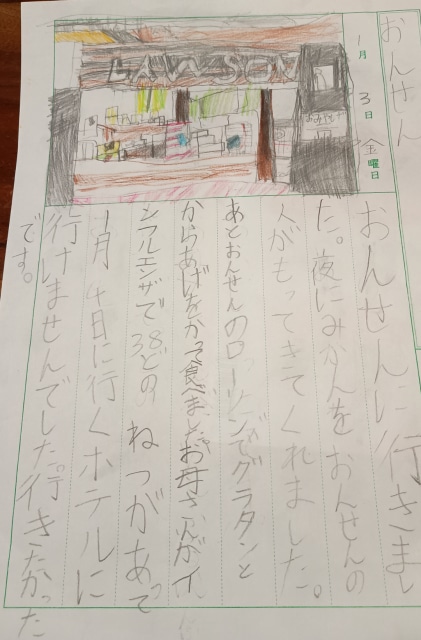 おんせん
1月3日金曜日
LAWSON
おんせんに行きまし
た。夜にみかんをおんせんの
人がもってきてくれました。
あとおんせんのローソンでグラタンと
からあげをかって食べましたがお母さんがイ
ンフルエンザで38どのねつがあって
1月4日に行くホテルに
行けませんでした。行きたかった
です。